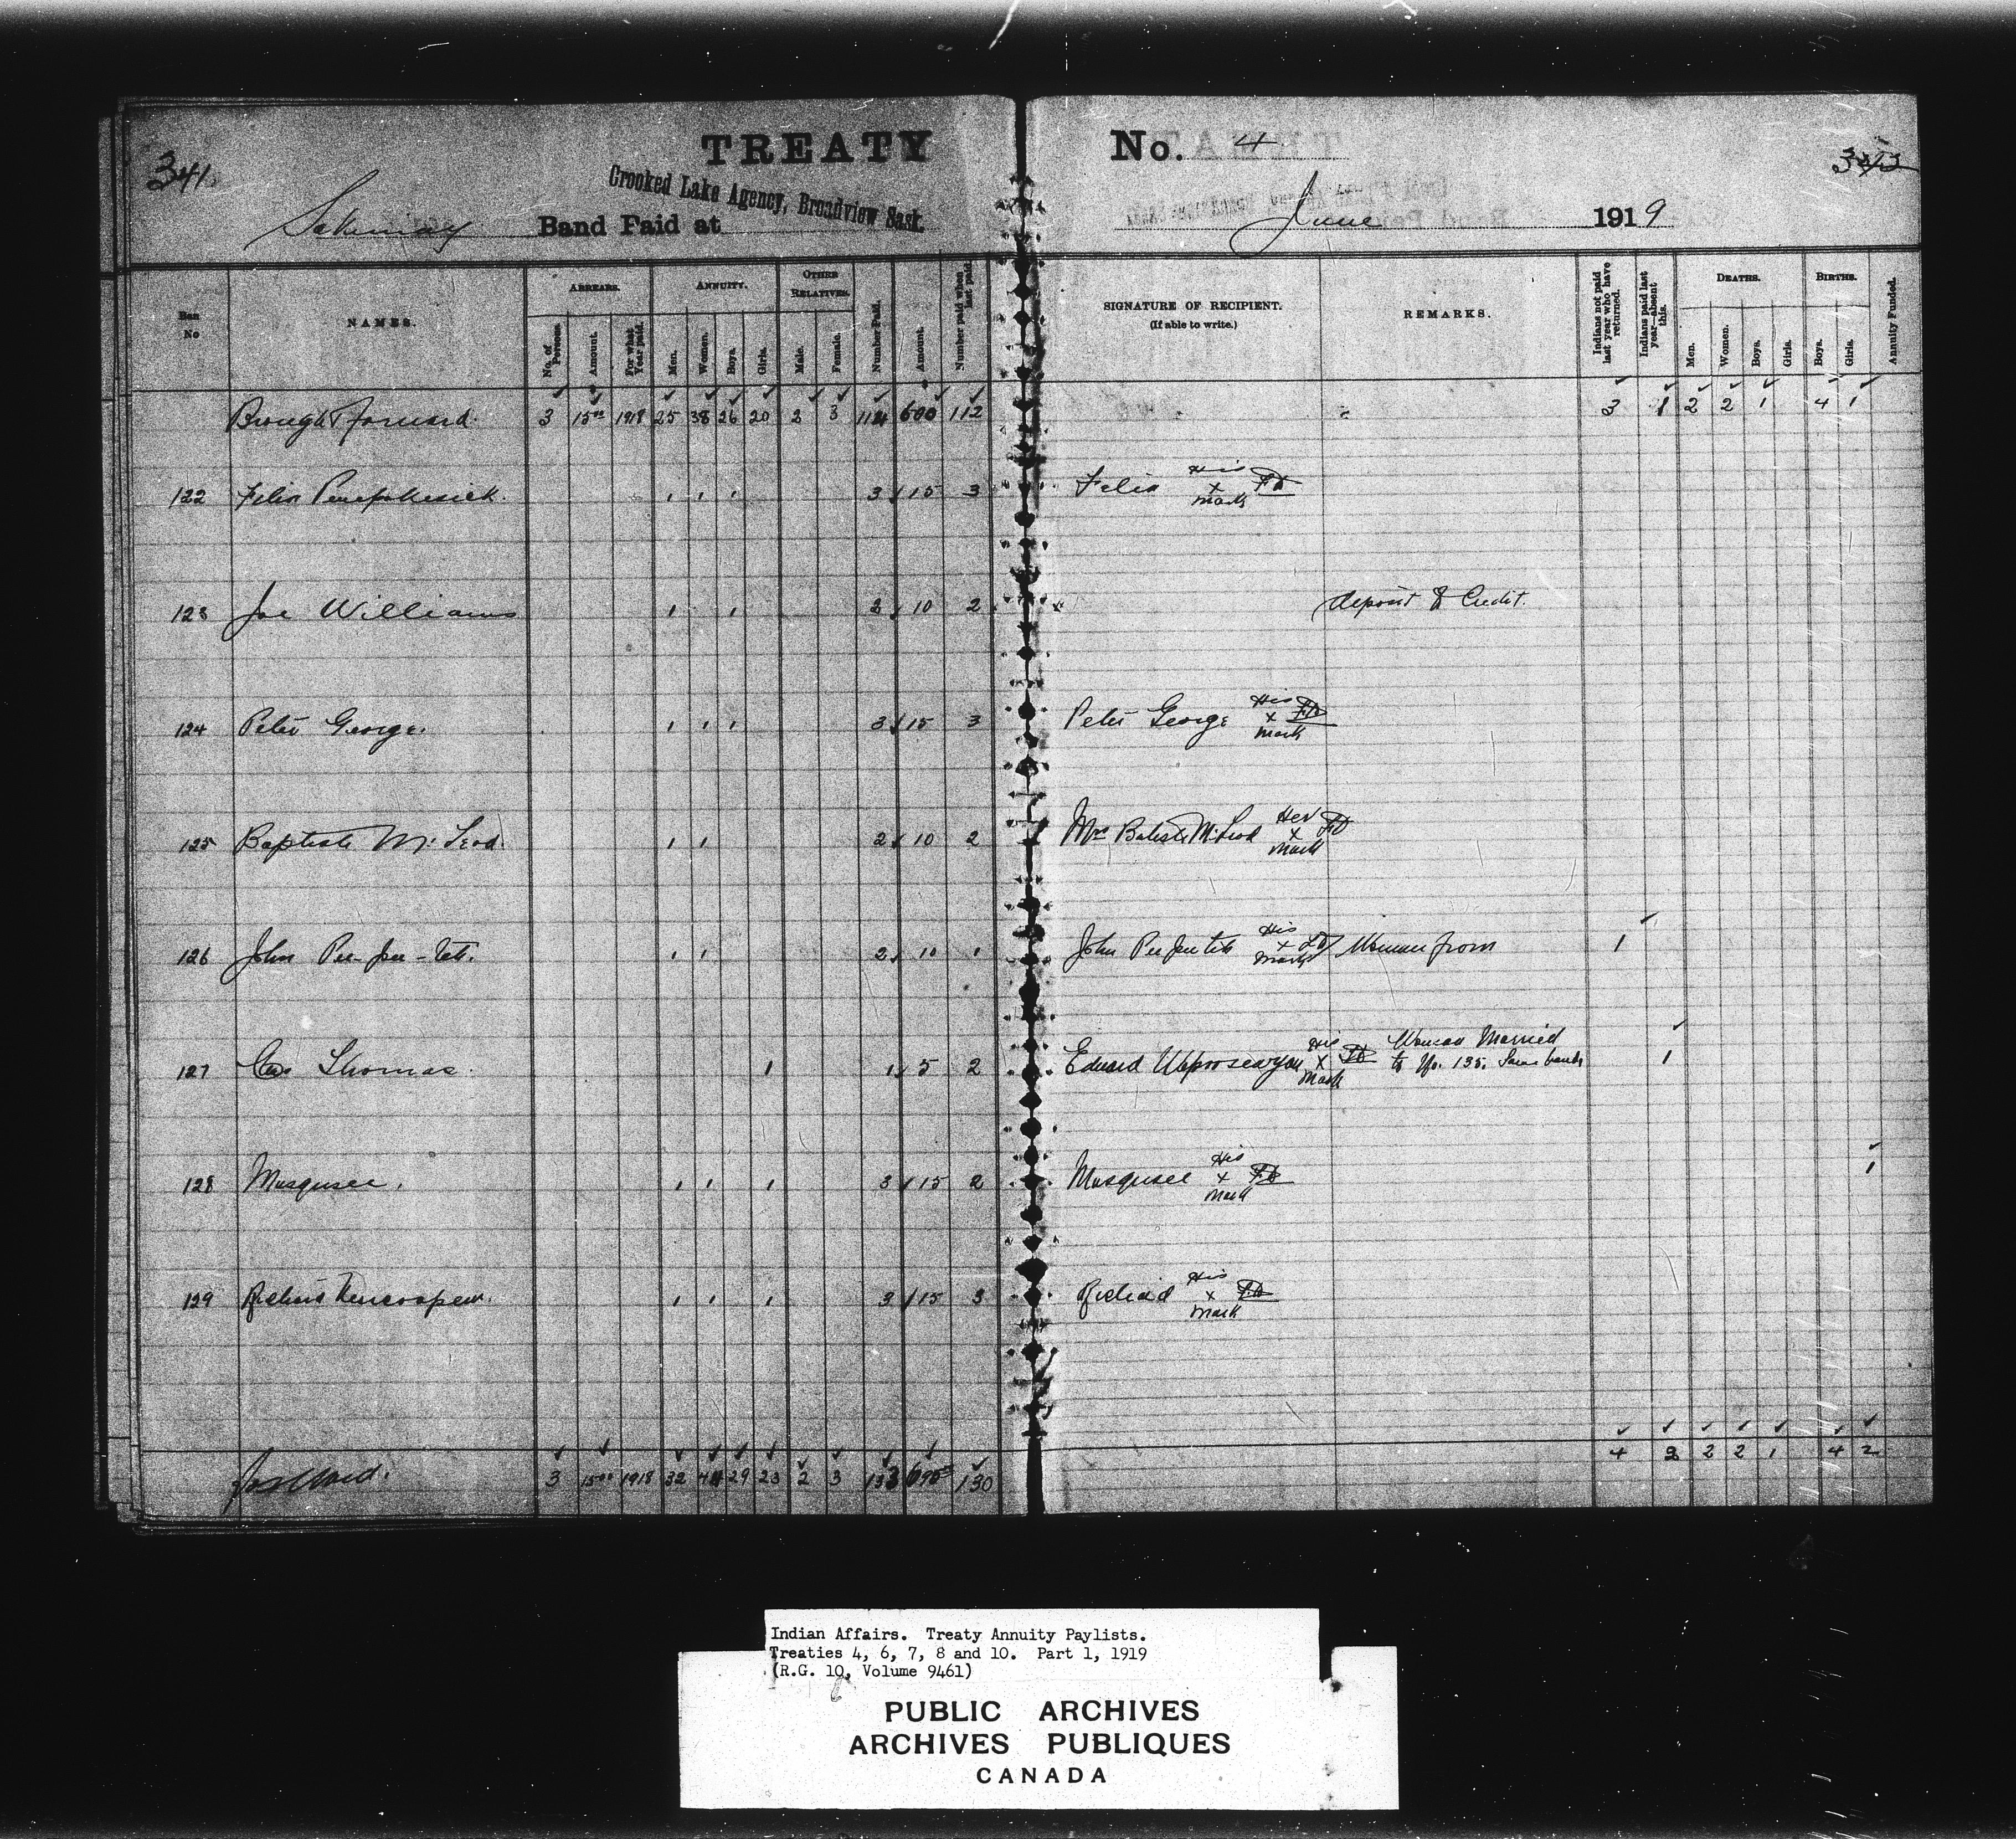 341
TREATY No. 4
Crooked Lake Agency, Broadview Sask.
Sakimay Band Paid at June 1919
Ban No
NAMES.
ARREARS.
No. of Persons.
Amount.
For what Year paid.
ANNUITY.
Men.
Women.
Boys.
Girls.
OTHER RELATIVES.
Male.
Female.
Number Paid.
Amount.
Number paid when last paid.
SIGNATURE OF RECIPIENT.
(If able to write.)
REMARKS.
Indians not paid last year who have returned.
Indians paid last year—absent this.
DEATHS.
Men.
Women.
Boys.
Girls.
BIRTHS.
Boys.
Girls.
Annuity Funded.
Brought Forward. 3 15 00 1918 25 38 26 20 2 3 114 600 112 3 1 2 2 1 4 1
122 Felix 3 15 3 Felix His x mark FD
123 Joe Williams 2 10 2 deposit to Credit.
124 Peter George. 3 15 3 Peter George His x mark FD
125 Baptiste McLeod. 2 10 2 Mrs Batiste McLeod Her x mark FD
126 John Pee-pee-tett. 2 10 1 John Peepeetett His x mark FD Woman from 1
127 Geo Thomas. 1 5 2 Edward His x mark FD Woman Married to No. 135. Same band 1
128 Musqusee. 3 15 2 Musqusee His x mark FD 1
129 Richard 3 15 3 Richard His x mark FD
Forward. 3 15 00 1918 32 44 29 23 2 3 133 695 130 4 2 2 2 1 4 2
Indian Affairs. Treaty Annuity Paylists.
Treaties 4, 6, 7, 8 and 10. Part 1, 1919
(R.G. 10, Volume 9461)
PUBLIC ARCHIVES
ARCHIVES PUBLIQUES
CANADA